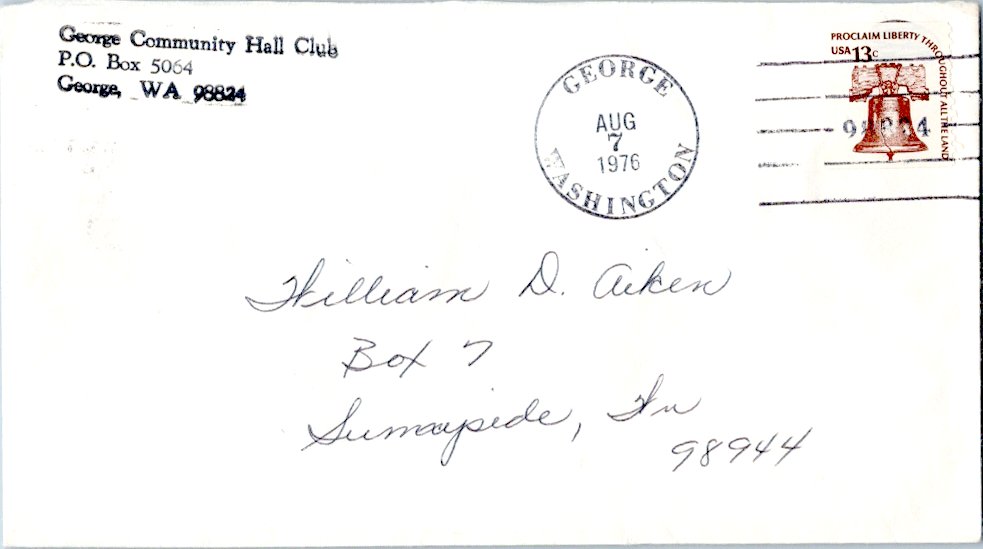 George Community Hall Club
P.O. Box 5064
George, WA 98824
GEORGE
AUG
7
1976
WASHINGTON
PROCLAIM LIBERTY THROUGHOUT ALL THE LAND
USA 13c
William D. Aiken
Box 7
Sunnyside, Wn
98944